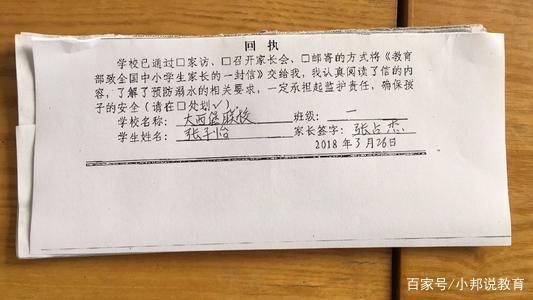 回 执
学校已通过☐家访、☐召开家长会、☐邮寄的方式将《教育
部致全国中小学生家长的一封信》交给我，我认真阅读了信的内
容，了解了预防溺水的相关要求，一定承担起监护责任，确保孩
子的安全（请在☐处划√）。
学校名称： 大西堡盛校 班级： 一
学生姓名： 张子怡 家长签字： 张占杰
2018年3月26日
百家号/小邦说教育